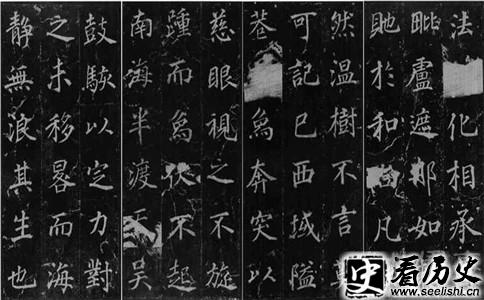 法化相承
毗盧遮那如
貤於和凡
然溫樹不言
可記已西域隘
巷象奔突以
慈眼視之不旋
踵而象伏不起
南海半渡天吳
鼓駭以定力對
之未移晷而海
靜無浪其生也
史 看历史
www.seelishi.cn